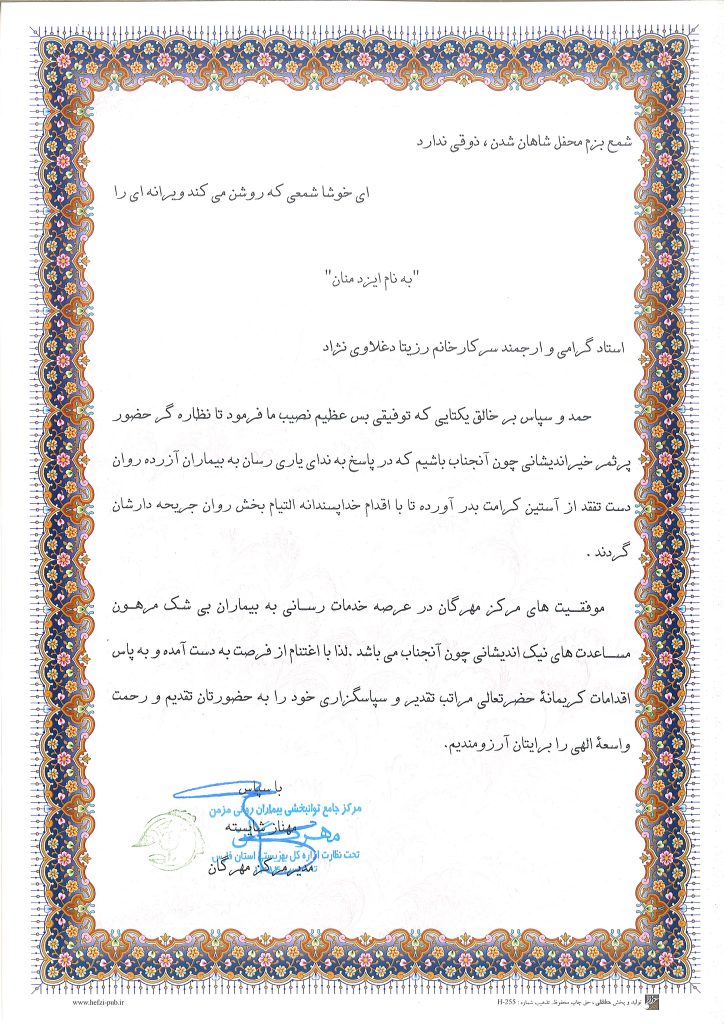 شمع بزم محفل شاهان شدن ، ذوقی ندارد
ای خوشا شمعی که روشن می کند ویرانه ای را
"به نام ایزد منان"
استاد گرامی و ارجمند سرکارخانم رزیتا دغلاوی نژاد
حمد و سپاس بر خالق یکتایی که توفیقی بس عظیم نصیب ما فرمود تا نظاره گر حضور
پرثمر خیراندیشانی چون آنجناب باشیم که در پاسخ به ندای یاری رسان به بیماران آزرده روان
دست تفقد از آستین کرامت بدر آورده تا با اقدام خداپسندانه التیام بخش روان جریحه دارشان
گردند .
موفقیت های مرکز مهرگان در عرصه خدمات رسانی به بیماران بی شک مرهون
مساعدت های نیک اندیشانی چون آنجناب می باشد .لذا با اغتنام از فرصت به دست آمده و به پاس
اقدامات کریمانهٔ حضرتعالی مراتب تقدیر و سپاسگزاری خود را به حضورتان تقدیم و رحمت
واسعهٔ الهی را برایتان آرزومندیم.
با سپاس
مرکز جامع توانبخشی بیماران روانی مزمن
مهناز شایسته
مهرگان
تحت نظارت اداره کل بهزیستی استان فارس
مدیرمرکز مهرگان
تولید و پخش حفظی ، حق چاپ محفوظ. تذهیب شماره : H-255
www.hefzi-pub.ir